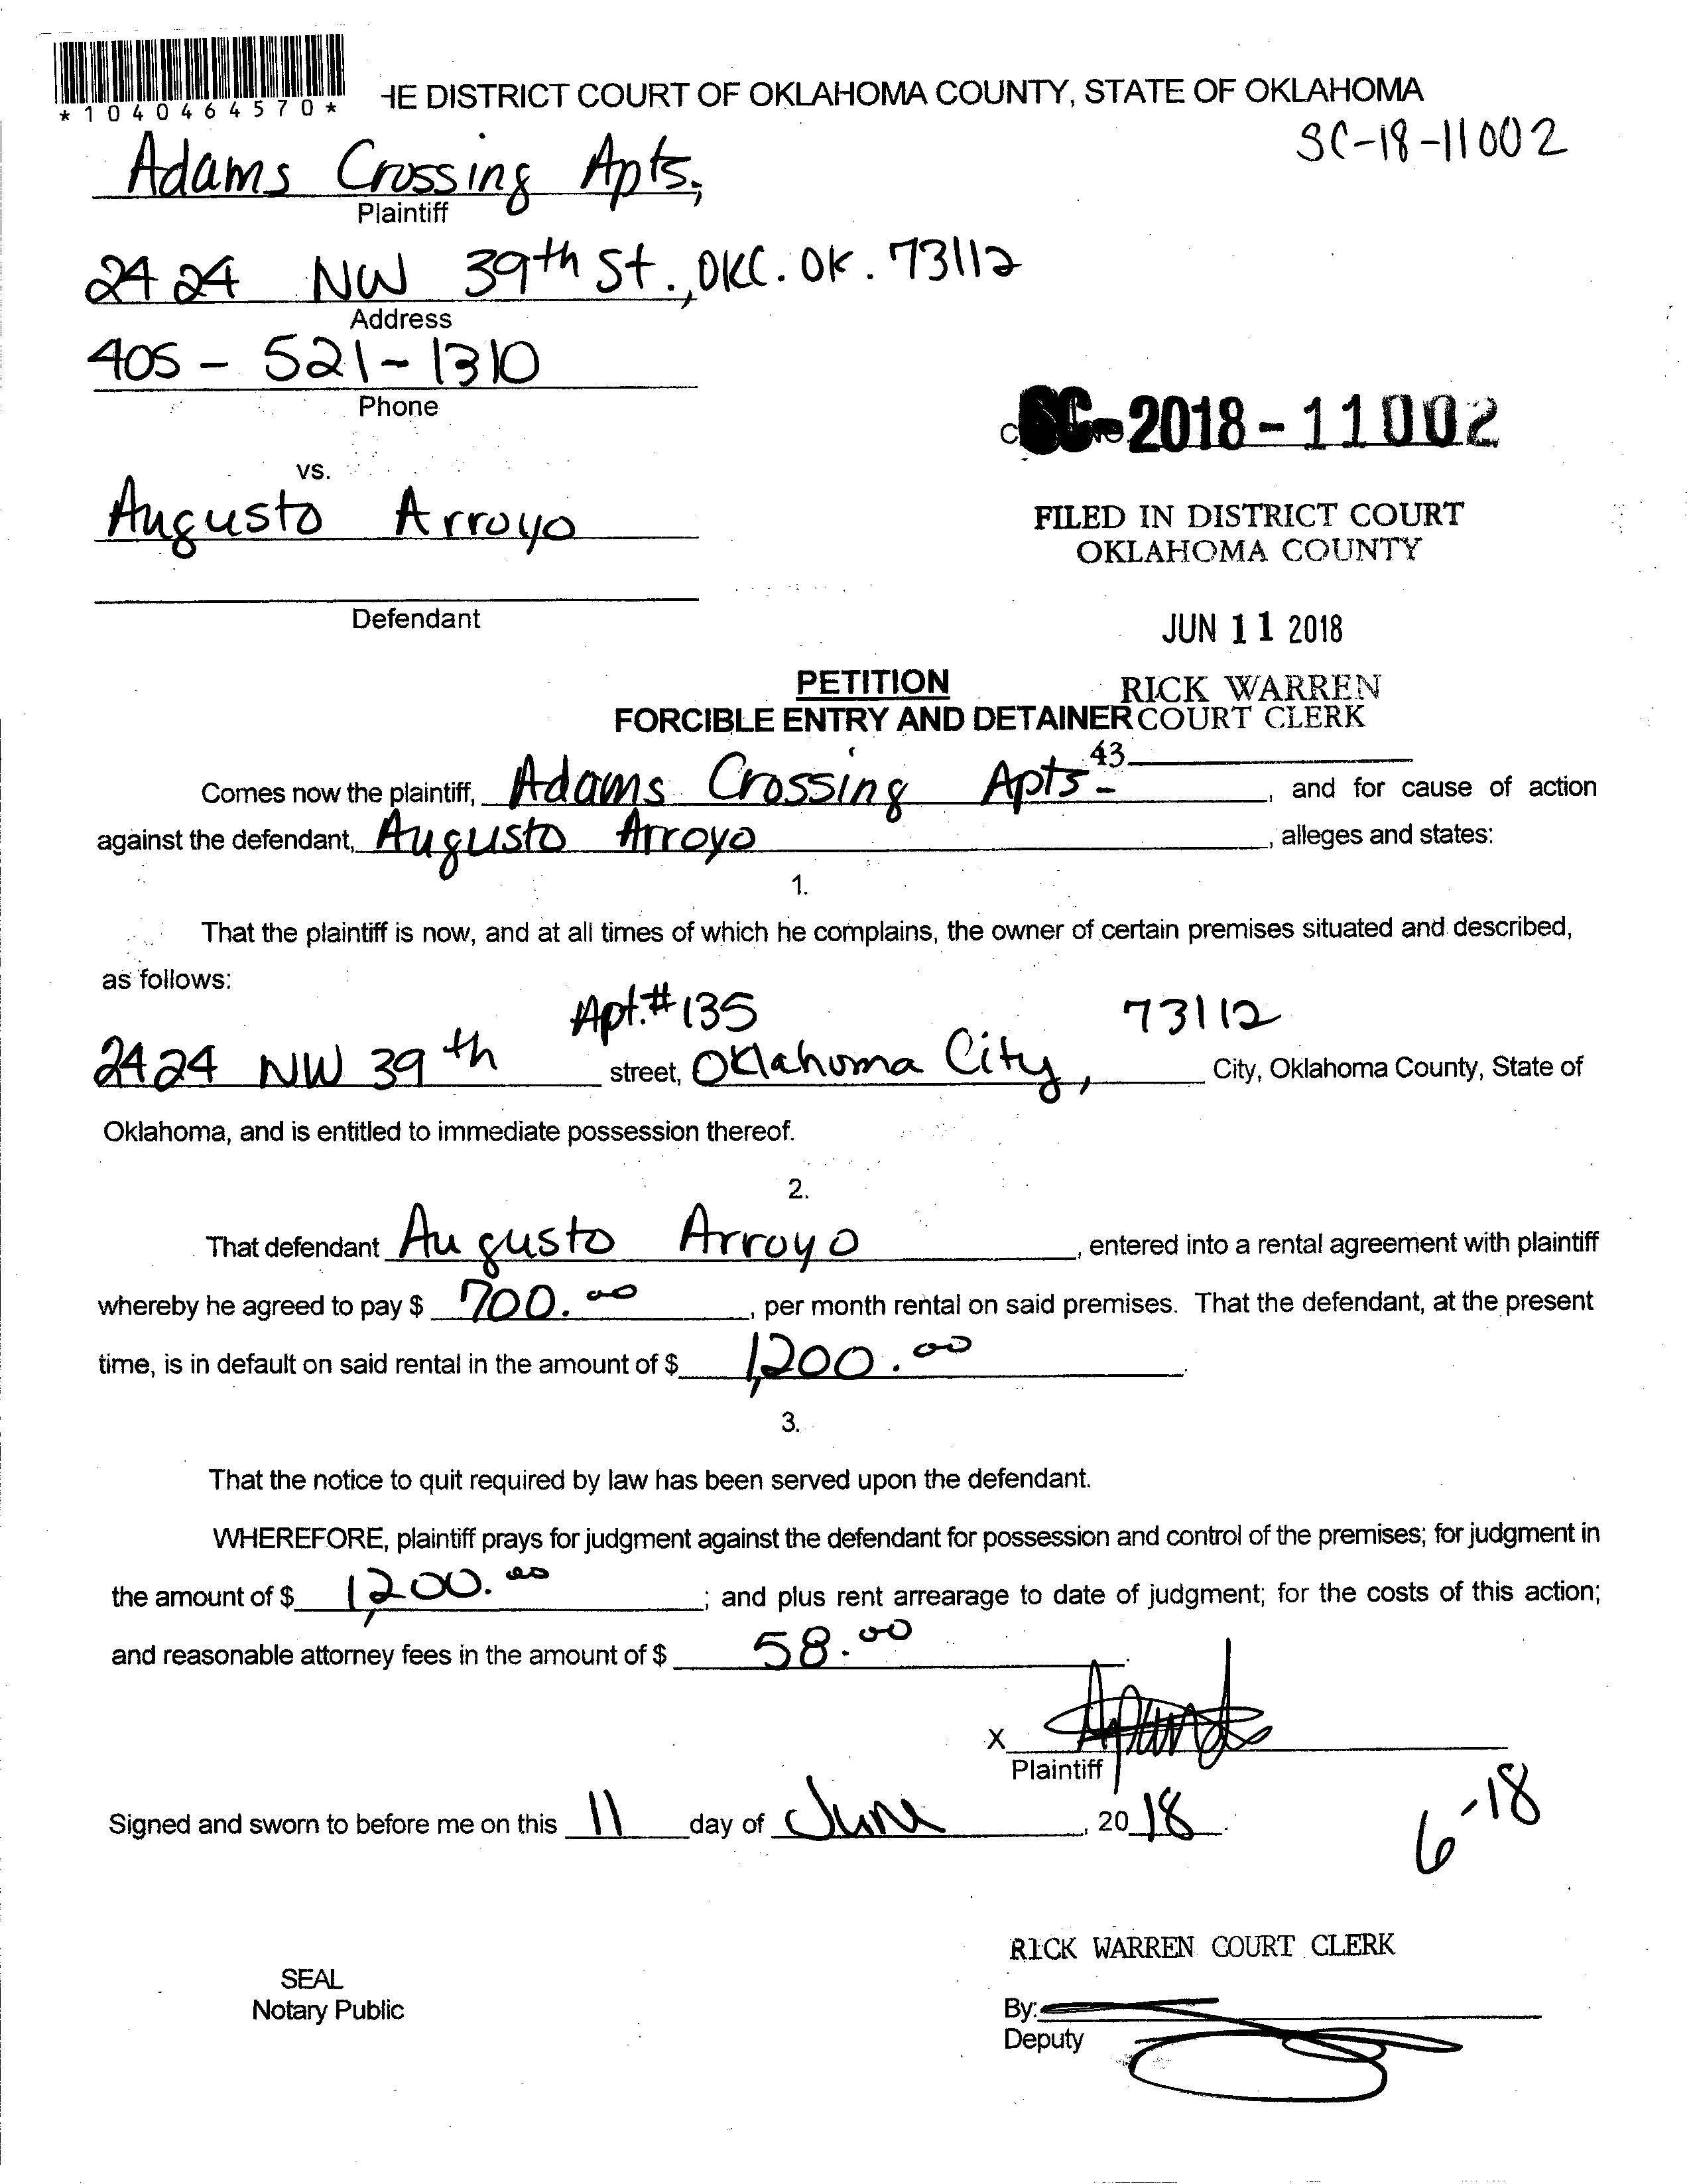 *1040464570*
HE DISTRICT COURT OF OKLAHOMA COUNTY, STATE OF OKLAHOMA
SC-18-11002
Adams Crossing Apts.,
Plaintiff
2424 NW 39th St., OKC. OK. 73112
Address
405-521-1310
Phone
SC-2018-11002
vs.
Augusto Arroyo
FILED IN DISTRICT COURT
OKLAHOMA COUNTY
Defendant
JUN 11 2018
PETITION
RICK WARREN
FORCIBLE ENTRY AND DETAINER COURT CLERK
43
Comes now the plaintiff, Adams Crossing Apts-, and for cause of action
against the defendant, Augusto Arroyo, alleges and states:
1.
That the plaintiff is now, and at all times of which he complains, the owner of certain premises situated and described,
as follows:
Apt.#135 73112
2424 NW 39th street, Oklahoma City, City, Oklahoma County, State of
Oklahoma, and is entitled to immediate possession thereof.
2.
That defendant Augusto Arroyo, entered into a rental agreement with plaintiff
whereby he agreed to pay $ 700.00, per month rental on said premises. That the defendant, at the present
time, is in default on said rental in the amount of $ 1,200.00.
3.
That the notice to quit required by law has been served upon the defendant.
WHEREFORE, plaintiff prays for judgment against the defendant for possession and control of the premises; for judgment in
the amount of $ 1,200.00; and plus rent arrearage to date of judgment; for the costs of this action;
and reasonable attorney fees in the amount of $ 58.00.
X
Plaintiff
Signed and sworn to before me on this 11 day of June, 2018.
6-18
RICK WARREN COURT CLERK
SEAL
Notary Public
By:
Deputy